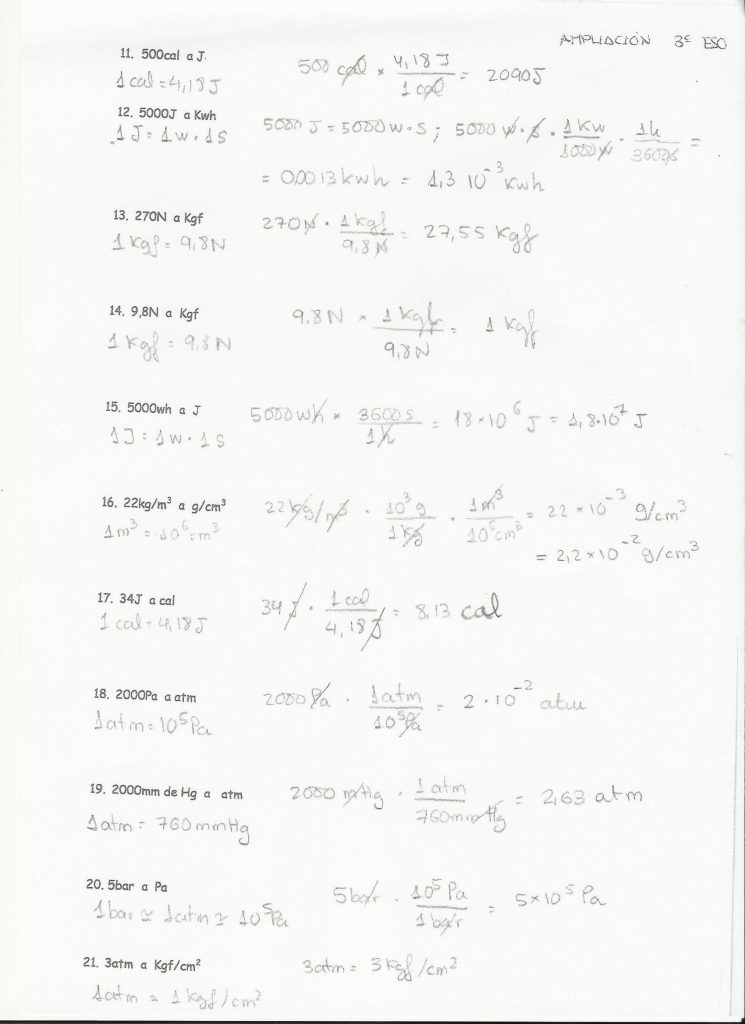 AMPLIACIÓN 3º ESO
11. 500cal a J.
1 cal = 4,18 J
500 cal × 4,18 J / 1 cal = 2090 J
12. 5000J a Kwh
1 J = 1 w · 1 s
5000 J = 5000 w · s ; 5000 w · s · 1 Kw / 1000 w · 1 h / 3600 s =
= 0,0013 kwh = 1,3 10⁻³ kwh
13. 270N a Kgf
1 Kgf = 9,8 N
270 N · 1 kgf / 9,8 N = 27,55 kgf
14. 9,8N a Kgf
1 Kgf = 9,8 N
9,8 N × 1 Kgf / 9,8 N = 1 kgf
15. 5000wh a J
1 J = 1 w · 1 s
5000 wh × 3600 s / 1 h = 18 × 10⁶ J = 1,8·10⁷ J
16. 22kg/m³ a g/cm³
1 m³ = 10⁶ cm³
22 kg/m³ · 10³ g / 1 kg · 1 m³ / 10⁶ cm³ = 22 × 10⁻³ g/cm³
= 2,2 × 10⁻² g/cm³
17. 34J a cal
1 cal = 4,18 J
34 J · 1 cal / 4,18 J = 8,13 cal
18. 2000Pa a atm
1 atm = 10⁵ Pa
2000 Pa · 1 atm / 10⁵ Pa = 2 · 10⁻² atm
19. 2000mm de Hg a atm
1 atm = 760 mmHg
2000 mmHg · 1 atm / 760 mmHg = 2,63 atm
20. 5bar a Pa
1 bar ≃ 1 atm ≃ 10⁵ Pa
5 bar · 10⁵ Pa / 1 bar = 5 × 10⁵ Pa
21. 3atm a Kgf/cm²
1 atm = 1 kgf/cm²
3 atm = 3 Kgf/cm²